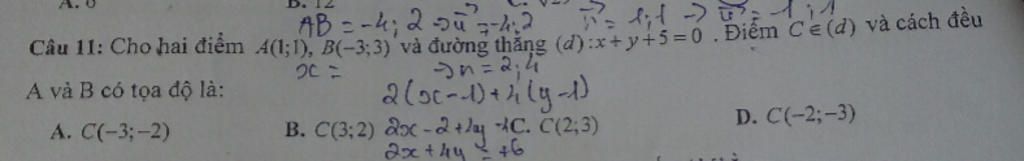 A. 0 B. 12
AB = -4; 2 → u = -4; 2 n = 1; 1 → u = -1; 1
Câu 11: Cho hai điểm A(1;1), B(−3;3) và đường thẳng (d): x + y + 5 = 0 . Điểm C ∈ (d) và cách đều
x = → n = 2; 4
A và B có tọa độ là:
2(x-1) + 4(y-1)
A. C(−3;−2) B. C(3;2) 2x - 2 + 4y - 4 C. C(2;3) D. C(−2;−3)
2x + 4y = +6